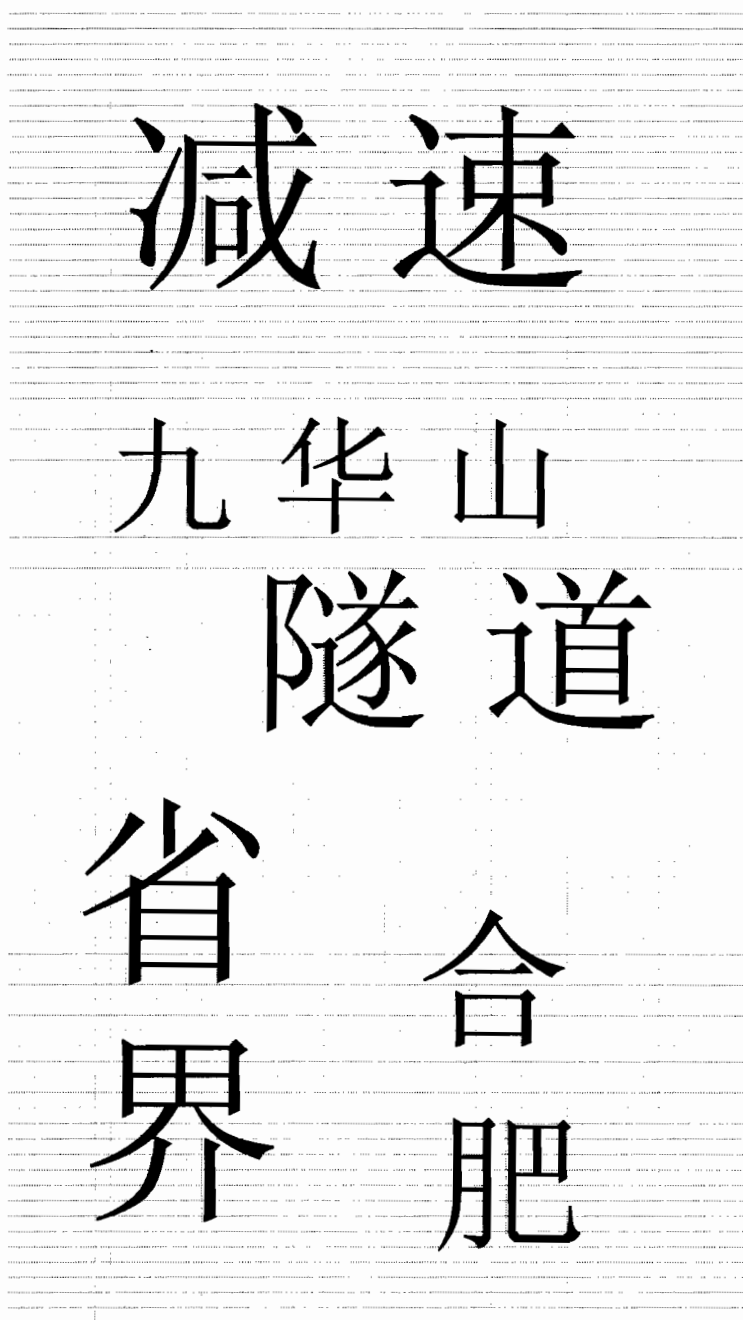 减速
九华山
隧道
省界
合肥